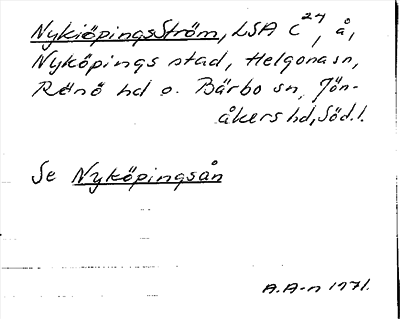 NykiöpingsStröm, LSA C 24, å,
Nyköpings stad, Helgona sn,
Rönö hd o. Bärbo sn, Jön-
åkers hd, Söd.l.
Se Nyköpingsån
A.A-n 1971.